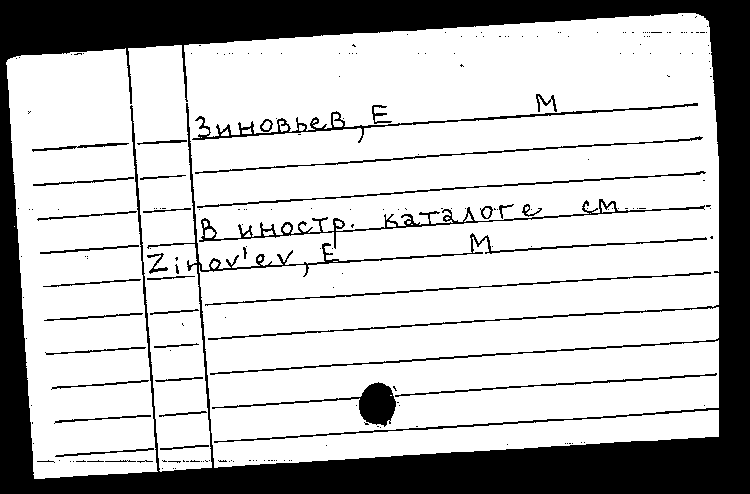 Зиновьев, Е М
В иностр. каталоге см
Zinov'ev, E M